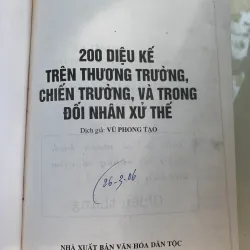 200 DIỆU KẾ
TRÊN THƯƠNG TRƯỜNG,
CHIẾN TRƯỜNG, VÀ TRONG
ĐỐI NHÂN XỬ THẾ
Dịch giả: VŨ PHONG TẠO
26-3-06
NHÀ XUẤT BẢN VĂN HÓA DÂN TỘC